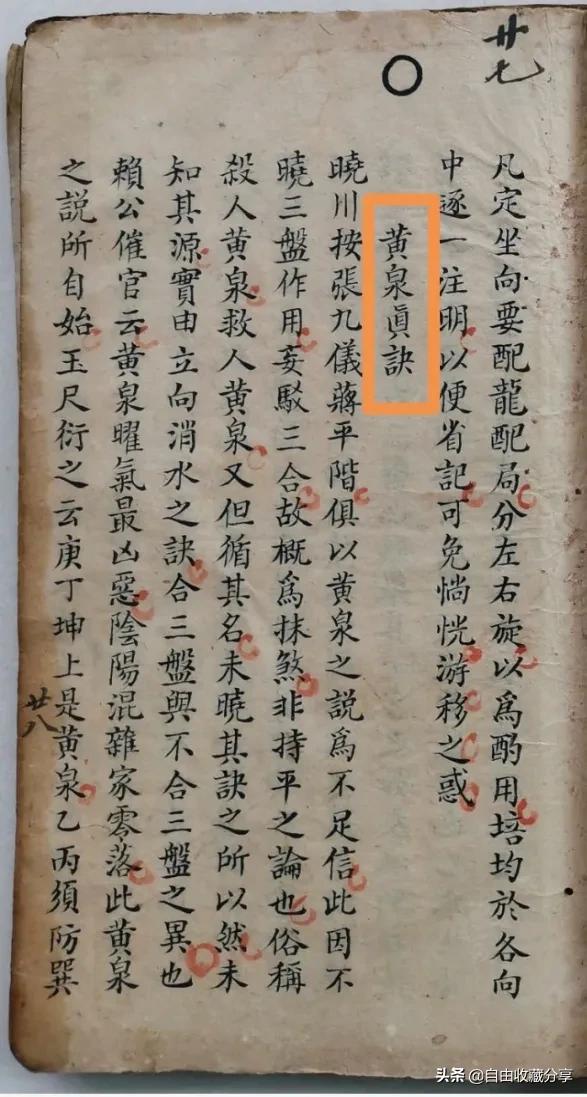 廿七
凡定坐向要配龍配局分左右旋以為酌用培均於各向
中逐一注明以便省記可免惝恍游移之惑
黄泉眞訣
曉川按張九儀蔣平階俱以黄泉之説為不足信此因不
曉三盤作用妄駁三合故概為抹煞非持平之論也俗稱
殺人黄泉救人黄泉又但循其名未曉其訣之所以然未
知其源實由立向消水之訣合三盤與不合三盤之異也
賴公催官云黄泉曜氣最凶惡陰陽混雜家零落此黄泉
之説所自始玉尺衍之云庚丁坤上是黄泉乙丙須防巽
廿八
头条 @自由收藏分享